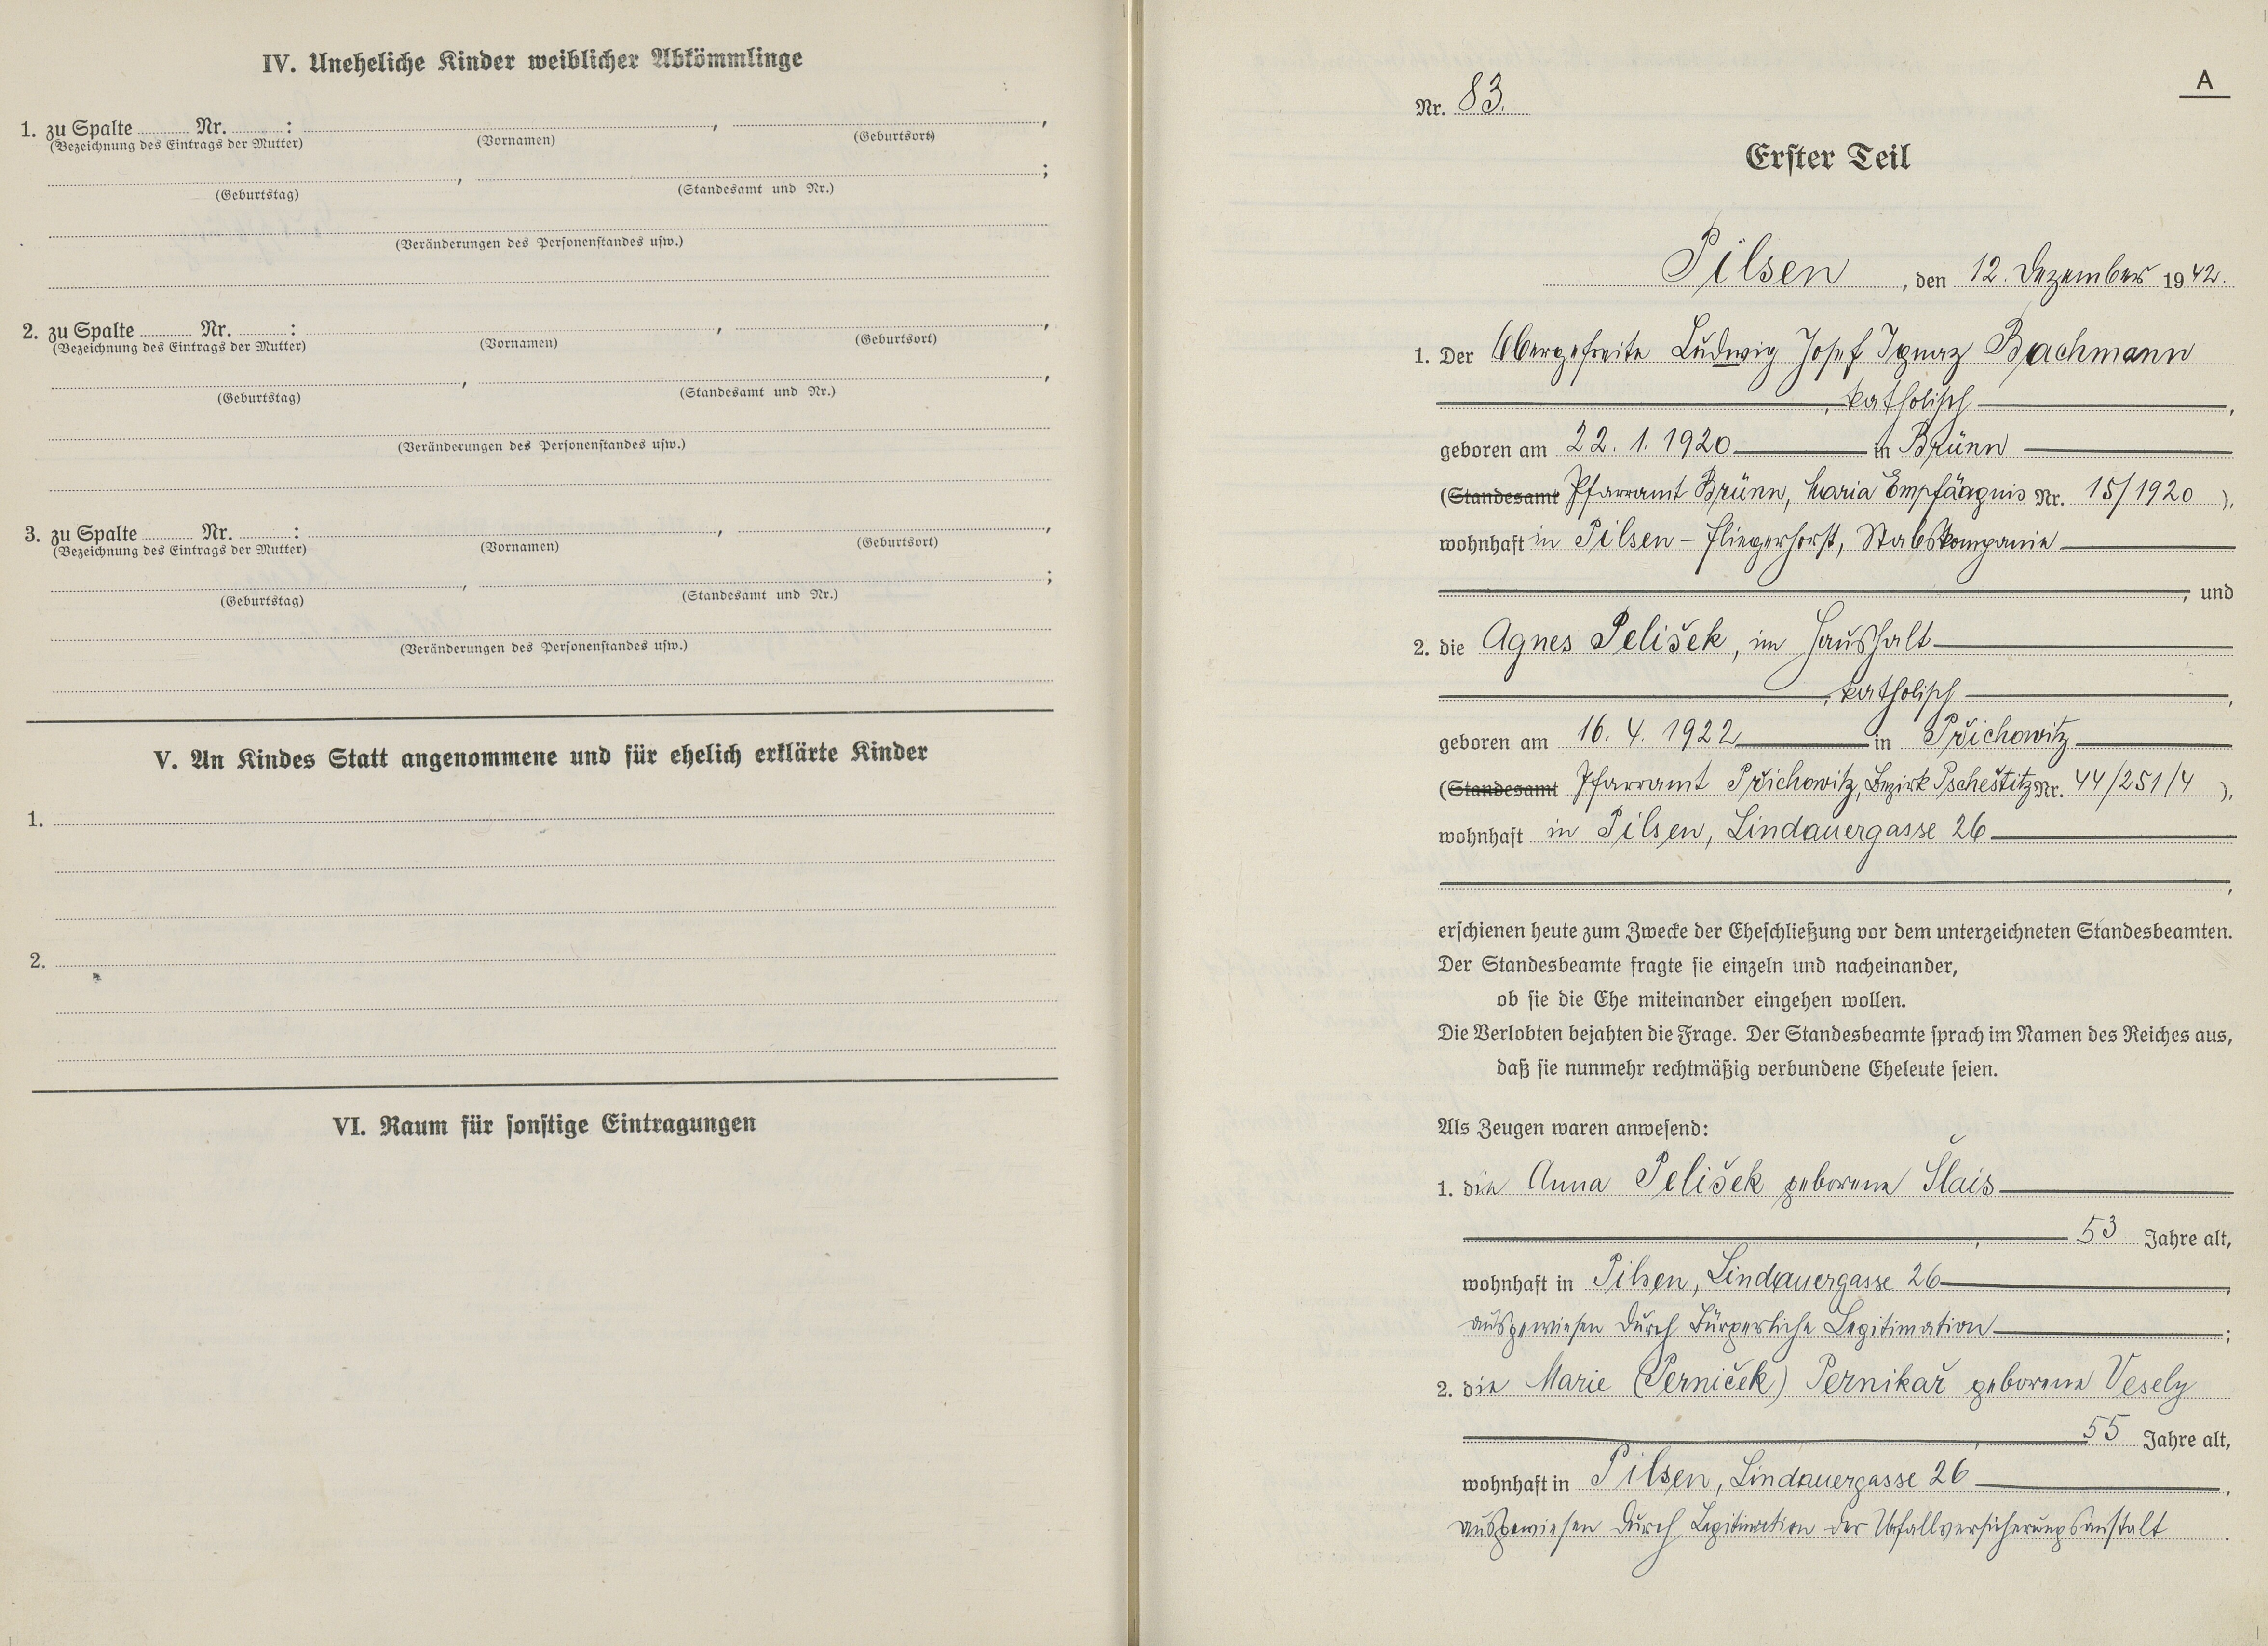 IV. Uneheliche Kinder weiblicher Abkömmlinge
1. zu Spalte ... Nr. ... : , ,
(Bezeichnung des Eintrags der Mutter) (Vornamen) (Geburtsort)
, ;
(Geburtstag) (Standesamt und Nr.)
(Veränderungen des Personenstandes usw.)
2. zu Spalte ... Nr. ... : , ,
(Bezeichnung des Eintrags der Mutter) (Vornamen) (Geburtsort)
, ,
(Geburtstag) (Standesamt und Nr.)
(Veränderungen des Personenstandes usw.)
3. zu Spalte ... Nr. ... : , ,
(Bezeichnung des Eintrags der Mutter) (Vornamen) (Geburtsort)
, ;
(Geburtstag) (Standesamt und Nr.)
(Veränderungen des Personenstandes usw.)
V. An Kindes Statt angenommene und für ehelich erklärte Kinder
1.
2.
VI. Raum für sonstige Eintragungen
A
Nr. 83.
Erster Teil
Pilsen, den 12. Dezember 1942.
1. Der Obergefreite Ludwig Josef Ignaz Bachmann
, katholisch,
geboren am 22. 1. 1920 in Brünn
(Standesamt Pfarramt Brünn, Maria Empfängnis Nr. 15/1920),
wohnhaft in Pilsen – Fliegerhorst, Stabskompanie
, und
2. die Agnes Pelišek, im Haushalt
, katholisch,
geboren am 16. 4. 1922 in Přichowitz
(Standesamt Pfarramt Přichowitz, Bezirk Pscheštitz Nr. 44/251/4),
wohnhaft in Pilsen, Lindauergasse 26
,
erschienen heute zum Zwecke der Eheschließung vor dem unterzeichneten Standesbeamten.
Der Standesbeamte fragte sie einzeln und nacheinander,
ob sie die Ehe miteinander eingehen wollen.
Die Verlobten bejahten die Frage. Der Standesbeamte sprach im Namen des Reiches aus,
daß sie nunmehr rechtmäßig verbundene Eheleute seien.
Als Zeugen waren anwesend:
1. die Anna Pelišek geborene Šlais
, 53 Jahre alt,
wohnhaft in Pilsen, Lindauergasse 26,
ausgewiesen durch Bürgerliche Legitimation;
2. die Marie (Perniček) Pernikař geborene Vesely
, 55 Jahre alt,
wohnhaft in Pilsen, Lindauergasse 26,
ausgewiesen durch Legitimation der Unfallversicherungsanstalt.